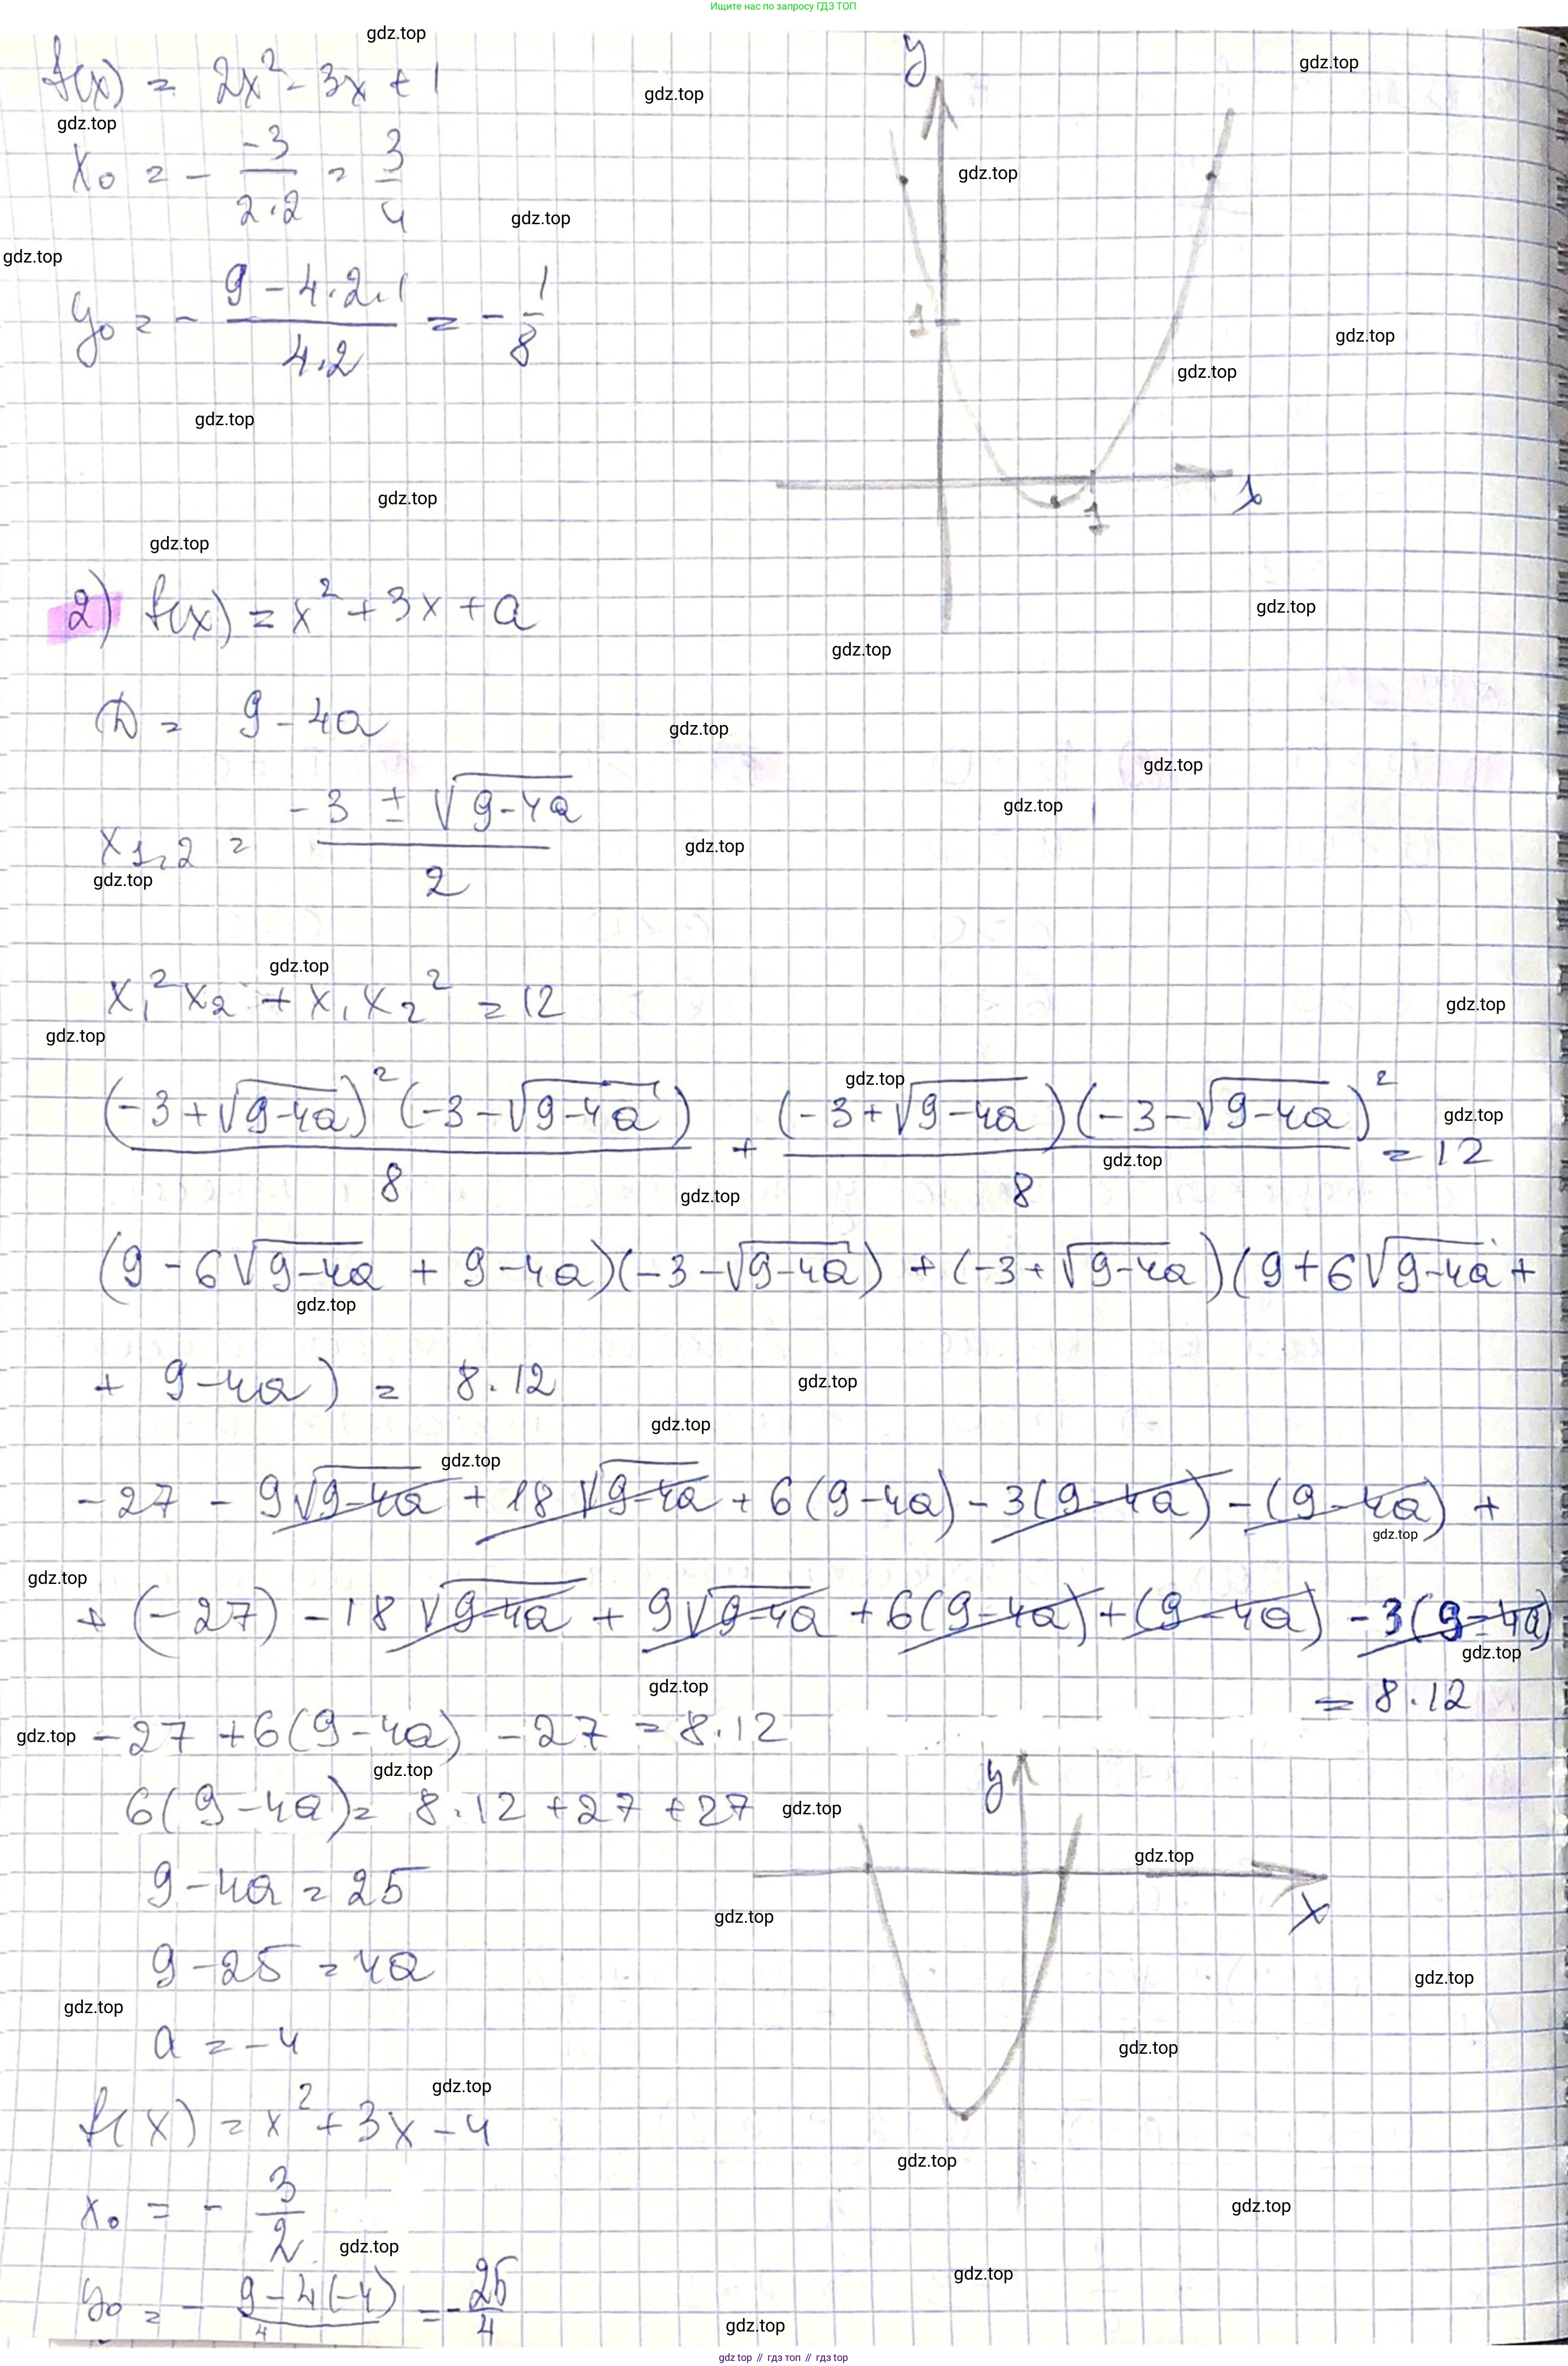 Ищите нас по запросу ГДЗ ТОП
gdz.top
f(x) = 2x² - 3x + 1
x₀ = - -3/(2·2) = 3/4
y₀ = - (9 - 4·2·1)/(4·2) = - 1/8
y
1
1
x
2) f(x) = x² + 3x + a
D = 9 - 4a
x₁,₂ = (-3 ± √(9-4a))/2
x₁²x₂ + x₁x₂² = 12
(-3+√(9-4a))²(-3-√(9-4a))/8 + (-3+√(9-4a))(-3-√(9-4a))²/8 = 12
(9 - 6√(9-4a) + 9-4a)(-3-√(9-4a)) + (-3+√(9-4a))(9+6√(9-4a) +
+ 9-4a) = 8·12
-27 - 9√(9-4a) + 18√(9-4a) + 6(9-4a) - 3(9-4a) - (9-4a) +
+ (-27) - 18√(9-4a) + 9√(9-4a) + 6(9-4a) + (9-4a) - 3(9-4a)
= 8·12
-27 + 6(9-4a) - 27 = 8·12
6(9-4a) = 8·12 + 27 + 27
9 - 4a = 25
9 - 25 = 4a
a = -4
f(x) = x² + 3x - 4
x₀ = - 3/2
y₀ = - (9 - 4(-4))/4 = - 25/4
y
x
gdz.top // гдз топ // gdz top